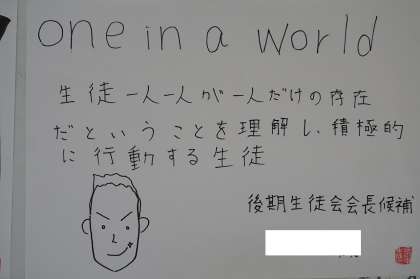 one in a world
生徒一人一人が一人だけの存在
だということを理解し、積極的
に行動する生徒
後期生徒会会長候補